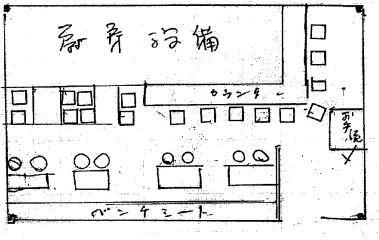 厨房設備
カウンター
お手洗
ベンチシート